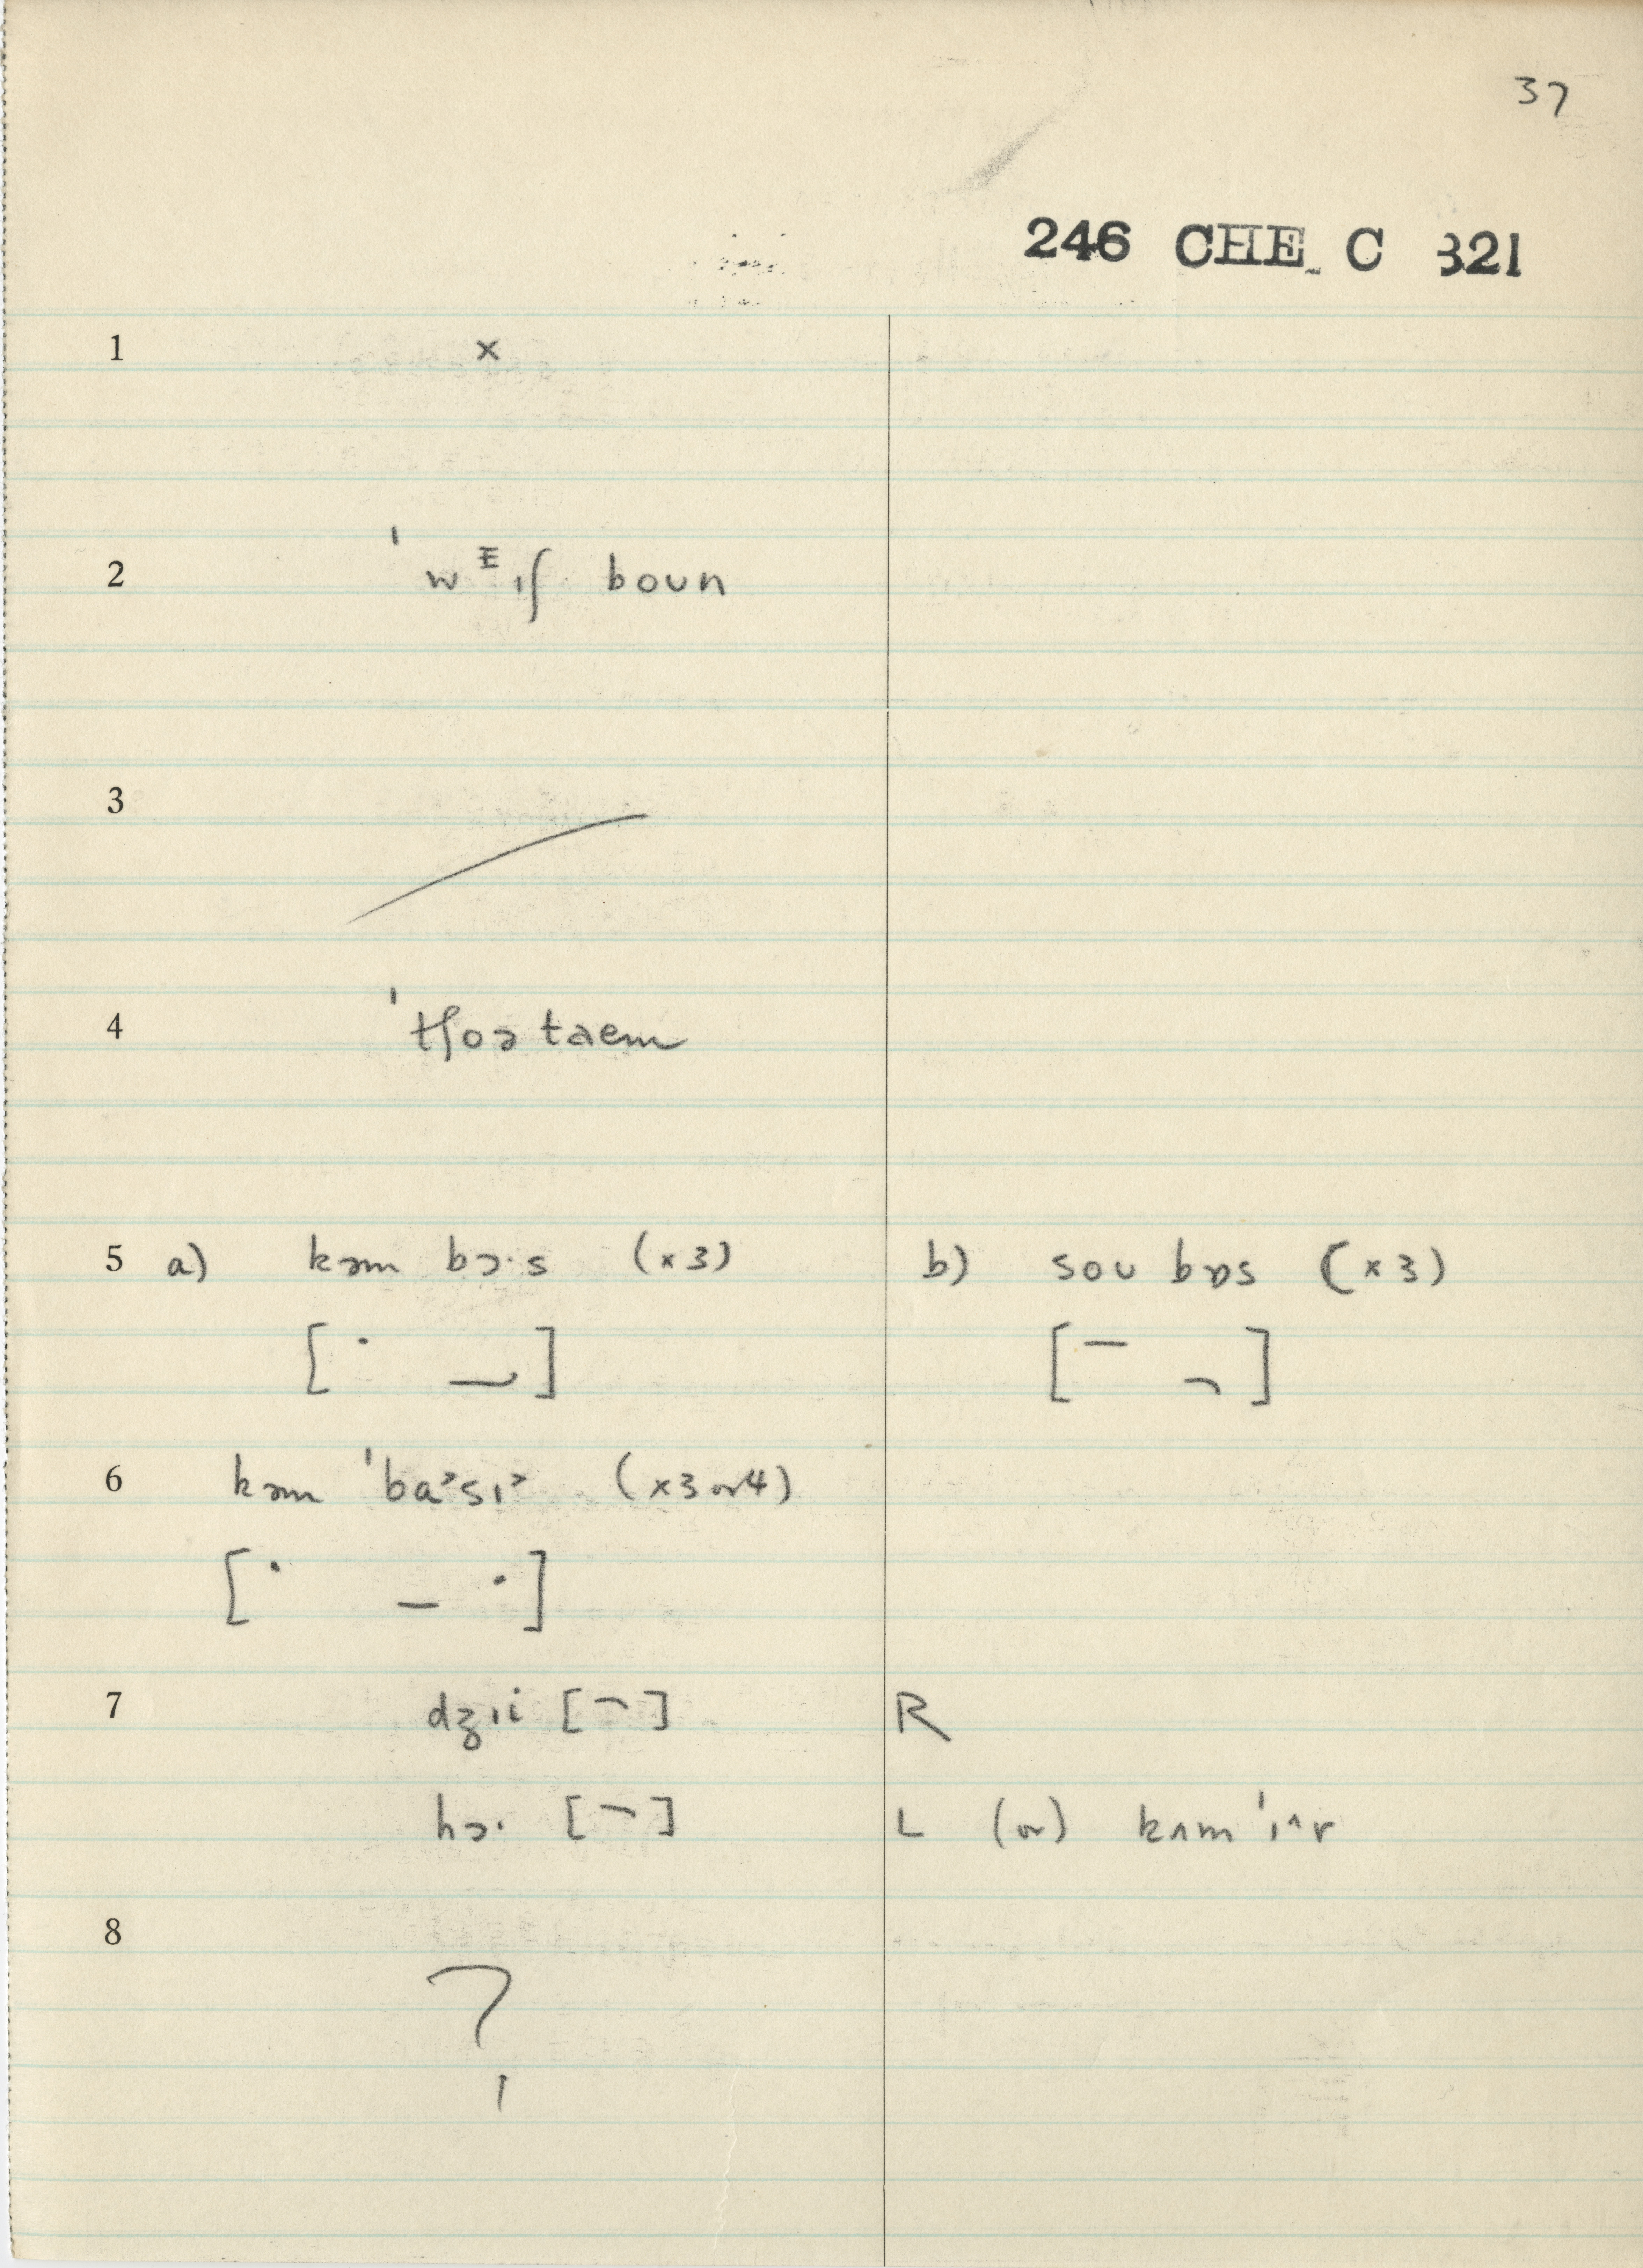 37
246 CHE C 321
1 ×
2 ˈwᴱɪʃ boun
3
4 ˈtʃoə taem
5 a) kəm bɔ·s (×3) b) sou bɒs (×3)
6 kəm ˈba˒sɪ˒ (×3 or 4)
7 dʒɪi [ ] R
hɔ· [ ] L (or) kʌm ˈɪ^r
8 ?